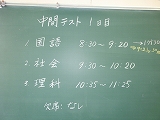 中間テスト 1日目
1. 国語 8:30〜9:20
2. 社会 9:30〜10:20
3. 理科 10:35〜11:25
欠席:なし